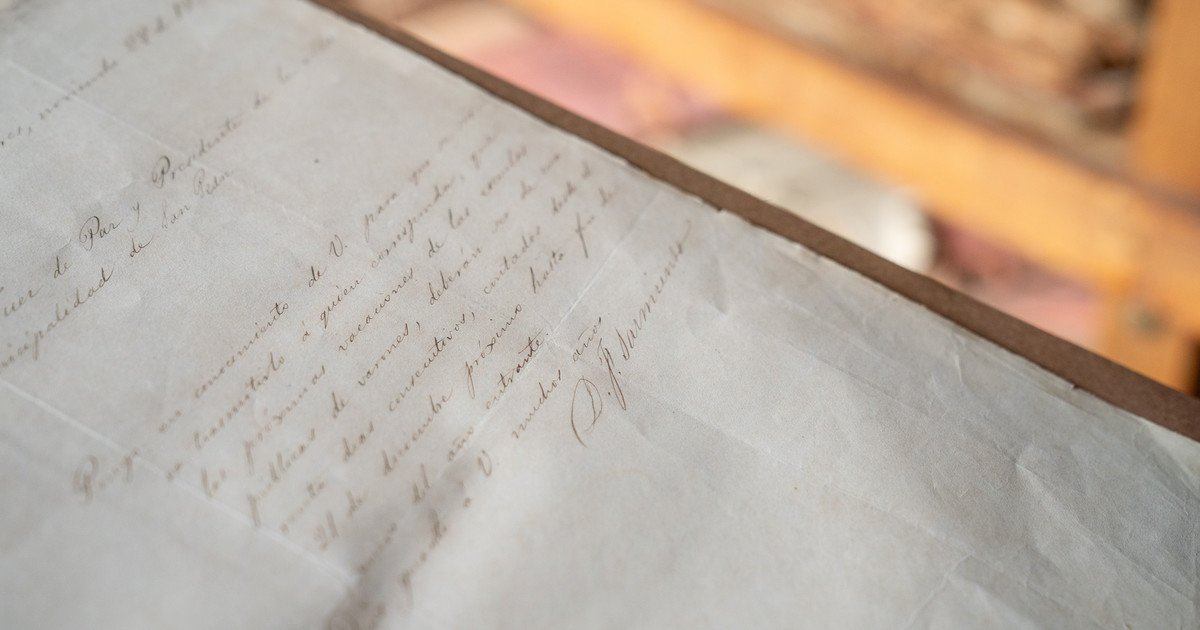 noviembre 28 de
Juez de Paz y Presidente de la
nicipalidad de San Pedro
Pongo en conocimiento de V. para que
se trasmitirlo á quien corresponda, que
las próximas vacaciones de las escuelas
publicas de varones, deberán ser de
dias consecutivos, contados desde el
21 de diciembre próximo hasta fin de
del año entrante.
guarde a V muchos años
D. F. Sarmiento